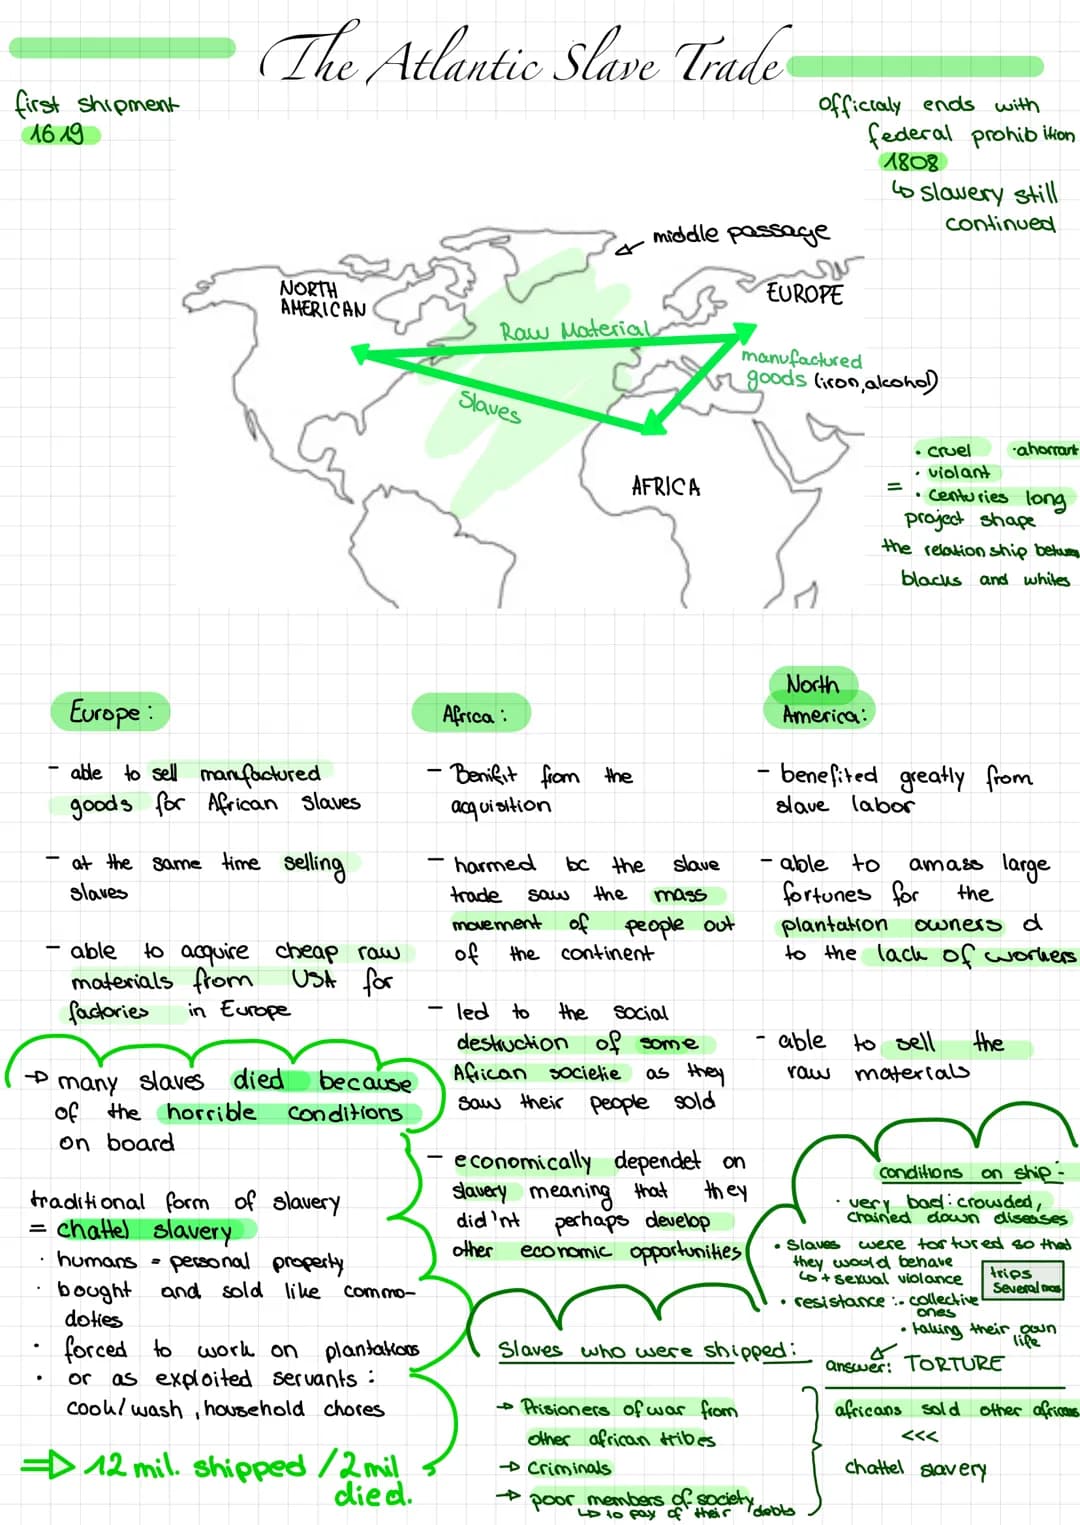 The Atlantic Slave Trade
first shipment
1619
officialy ends with
federal prohibition
1808
↳ slavery still
continued
middle passage
NORTH
AMERICAN
EUROPE
Raw Material
manufactured
goods (iron, alcohol)
Slaves
AFRICA
· cruel · ahorrant
· violant
= · centuries long
project shape
the relation ship between
blacks and whites
Europe:
- able to sell manufactured
goods for African slaves
- at the same time selling
slaves
- able to acquire cheap raw
materials from USA for
factories in Europe
→ many slaves died because
of the horrible conditions
on board
traditional form of slavery
= chattel slavery
· humans = personal property
· bought and sold like commo-
doties
· forced to work on plantations
· or as exploited servants:
cook/wash, household chores
⇒ 12 mil. shipped / 2 mil
died.
Africa:
- Benifit from the
acquisition
- harmed bc the slave
trade saw the mass
movement of people out
of the continent
- led to the social
destruction of some
African societie as they
saw their people sold
- economically dependet on
slavery meaning that they
did'nt perhaps develop
other economic opportunities
Slaves who were shipped:
→ Prisioners of war from
other african tribes
→ Criminals
→ poor members of society
↳ to pay of their debts
North
America:
- benefited greatly from
slave labor
- able to amass large
fortunes for the
plantation owners d
to the lack of workers
- able to sell the
raw materials
conditions on ship:
· very bad: crowded,
chained down diseases
· Slaves were tortured so that
they would behave
↳ + sexual violance
trips
Several mos
· resistance: · collective
ones
· taking their own
life
answer: TORTURE
africans sold other africans
<<<
chattel slavery